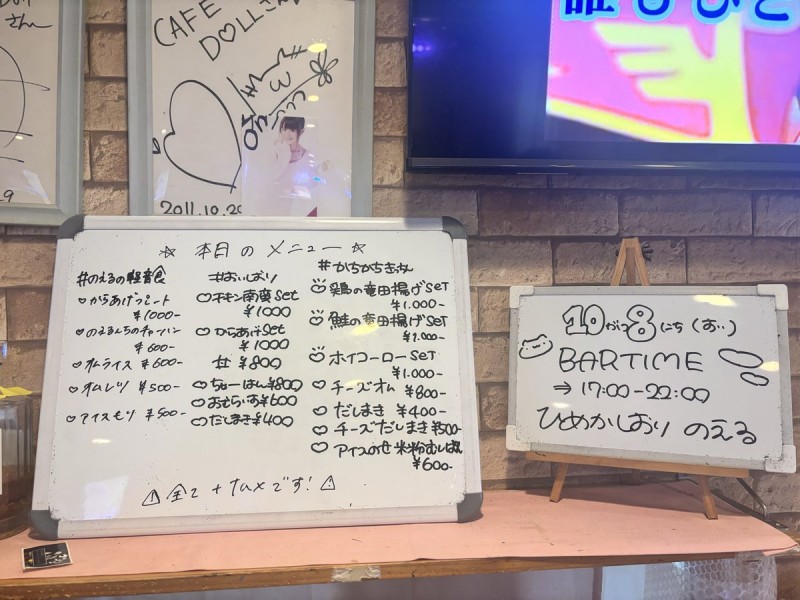 CAFE
DOLLさん
2011.10.29
☆ 本日の メニュー ☆
#のえるの軽音食
♡からあげプレート
¥1000-
♡のえるんちのチャーハン
¥600-
♡オムライス ¥600-
♡オムレツ ¥500-
♡アイスモリ ¥500-
#おいしおり
♡チキン南蛮set
¥1000
♡からあげset
¥1000
丼 ¥800
♡ちゃーはん¥800
♡おむらいす¥600
♡だしまき¥400
#かちかちきっちん
♡鶏の竜田揚げSET
¥1.000-
♡鮭の竜田揚げSET
¥1.000-
♡ホイコーローSET
¥1.000-
♡チーズオム ¥800-
♡だしまき ¥400-
♡チーズだしまき¥500-
♡アイスのせ 米粉むしぱん
¥600-
⚠全て+taxです!⚠
10がつ8にち(すい)
BARTIME
⇒17:00-22:00
ひめか しおり のえる